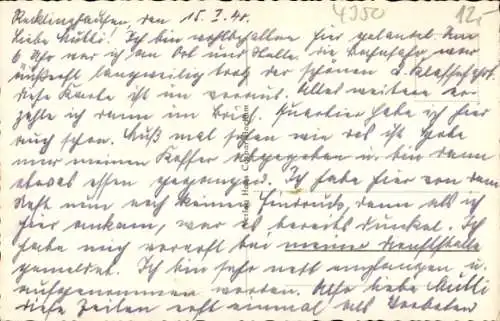 4350 12.
Recklinghausen den 15.I.41.
Liebe Mutti! Ich bin wohlbehalten hier gelandet. Um
6 Uhr war ich an Ort und Stelle. Die Bahnfahrt war
äußerst langweilig trotz der schönen 2. Klassefahrt.
Diese Karte ist im voraus. Alles weitere er-
zähle ich dann im Brief. Quartier habe ich hier
auch schon. Muß mal sehen wie das ist. Habe
nur meinen Koffer abgegeben u. bin dann
etwas essen gegangen. Ich habe hier von dem
Nest nun noch keinen Eindruck, denn als ich
hier ankam, war es bereits dunkel. Ich
habe mich vorerst bei meiner Dienststelle
gemeldet. Ich bin sehr nett empfangen u.
aufgenommen worden. Also liebe Mutti
diese Zeilen erst einmal als Vorboten